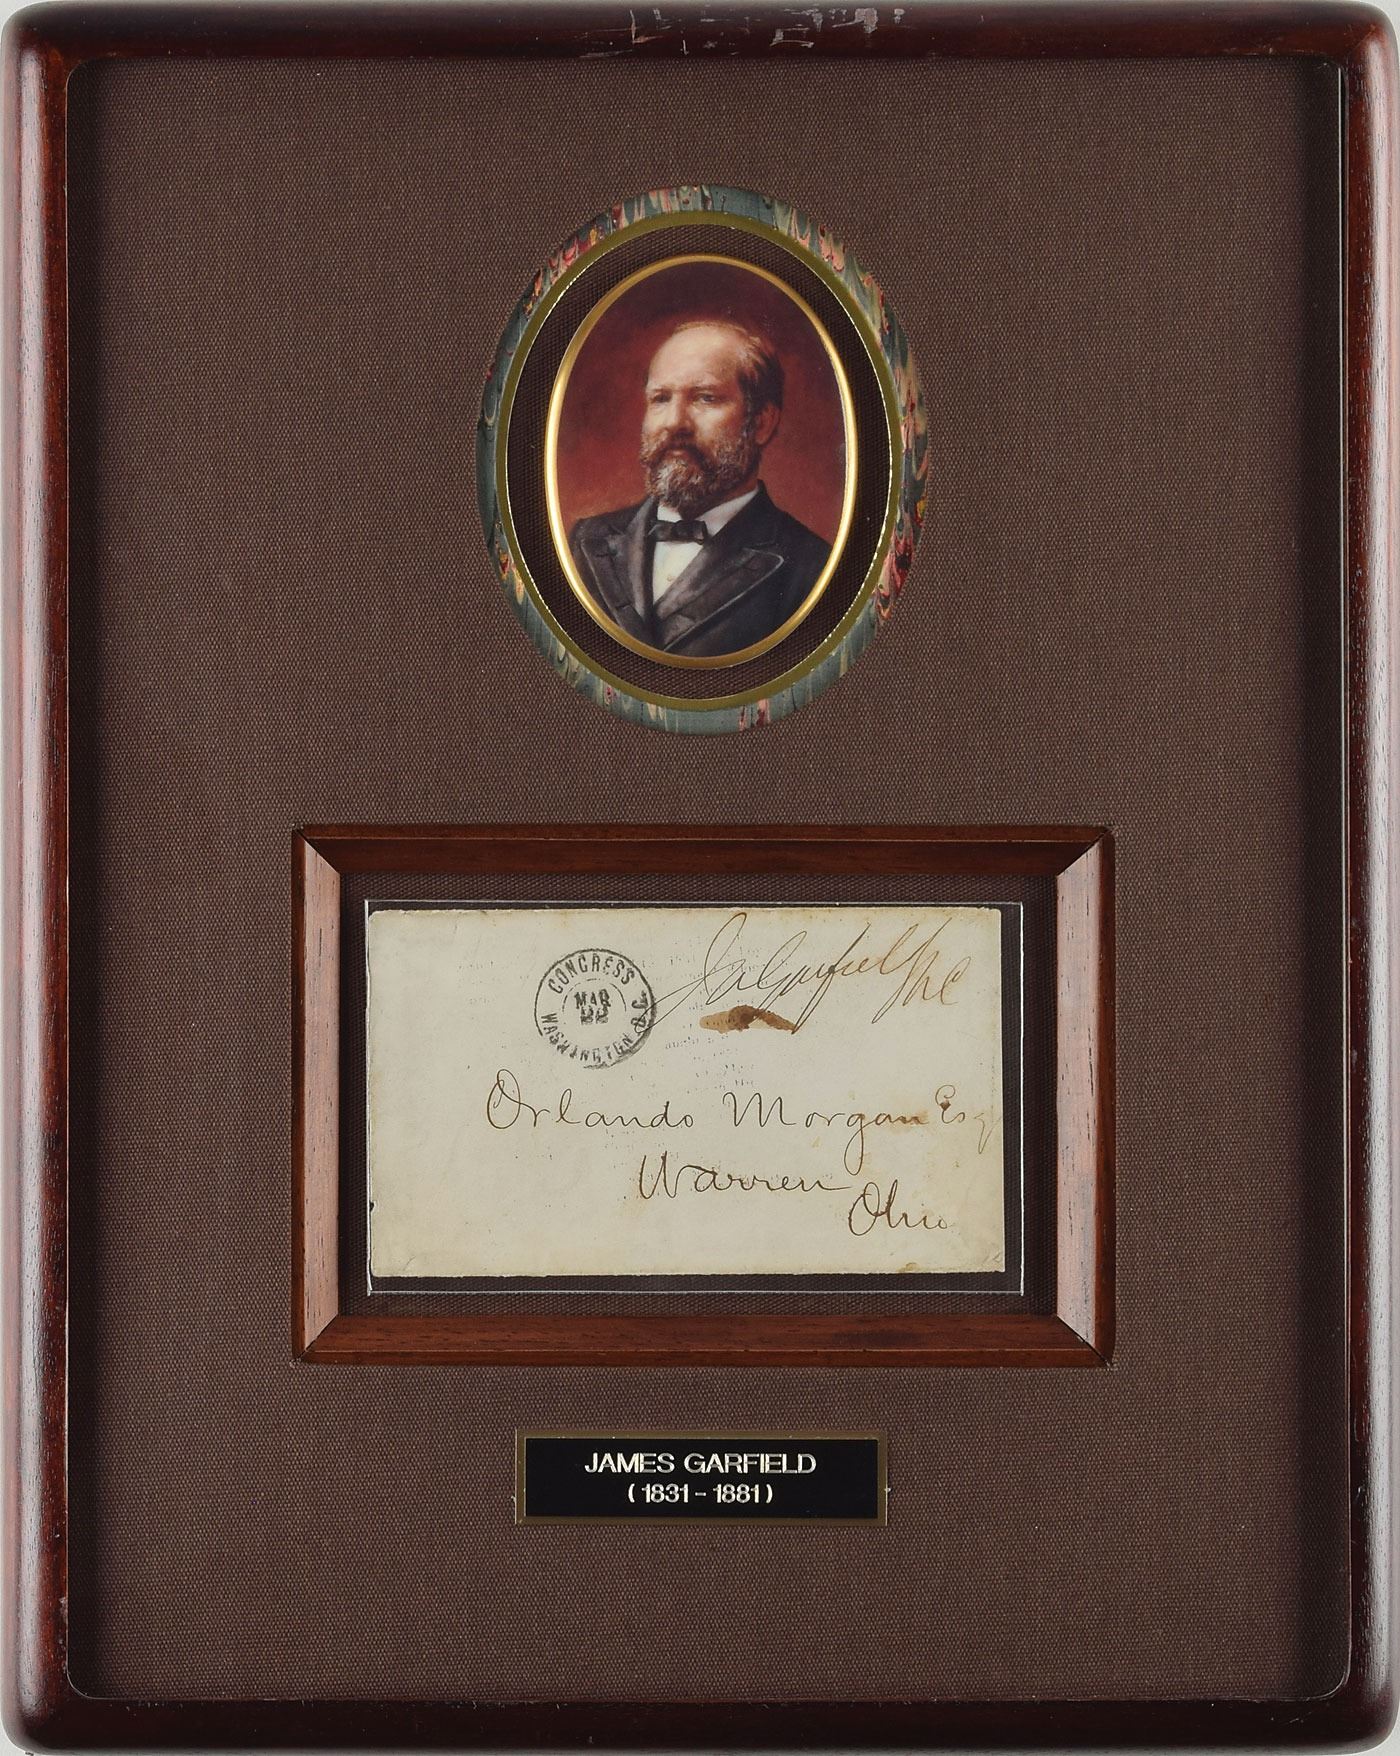 CONGRESS
MAR
WASHINGTON, D.C.
JAGarfield MC
Orlando Morgan Esq
Warren
Ohio
JAMES GARFIELD
(1831-1881)